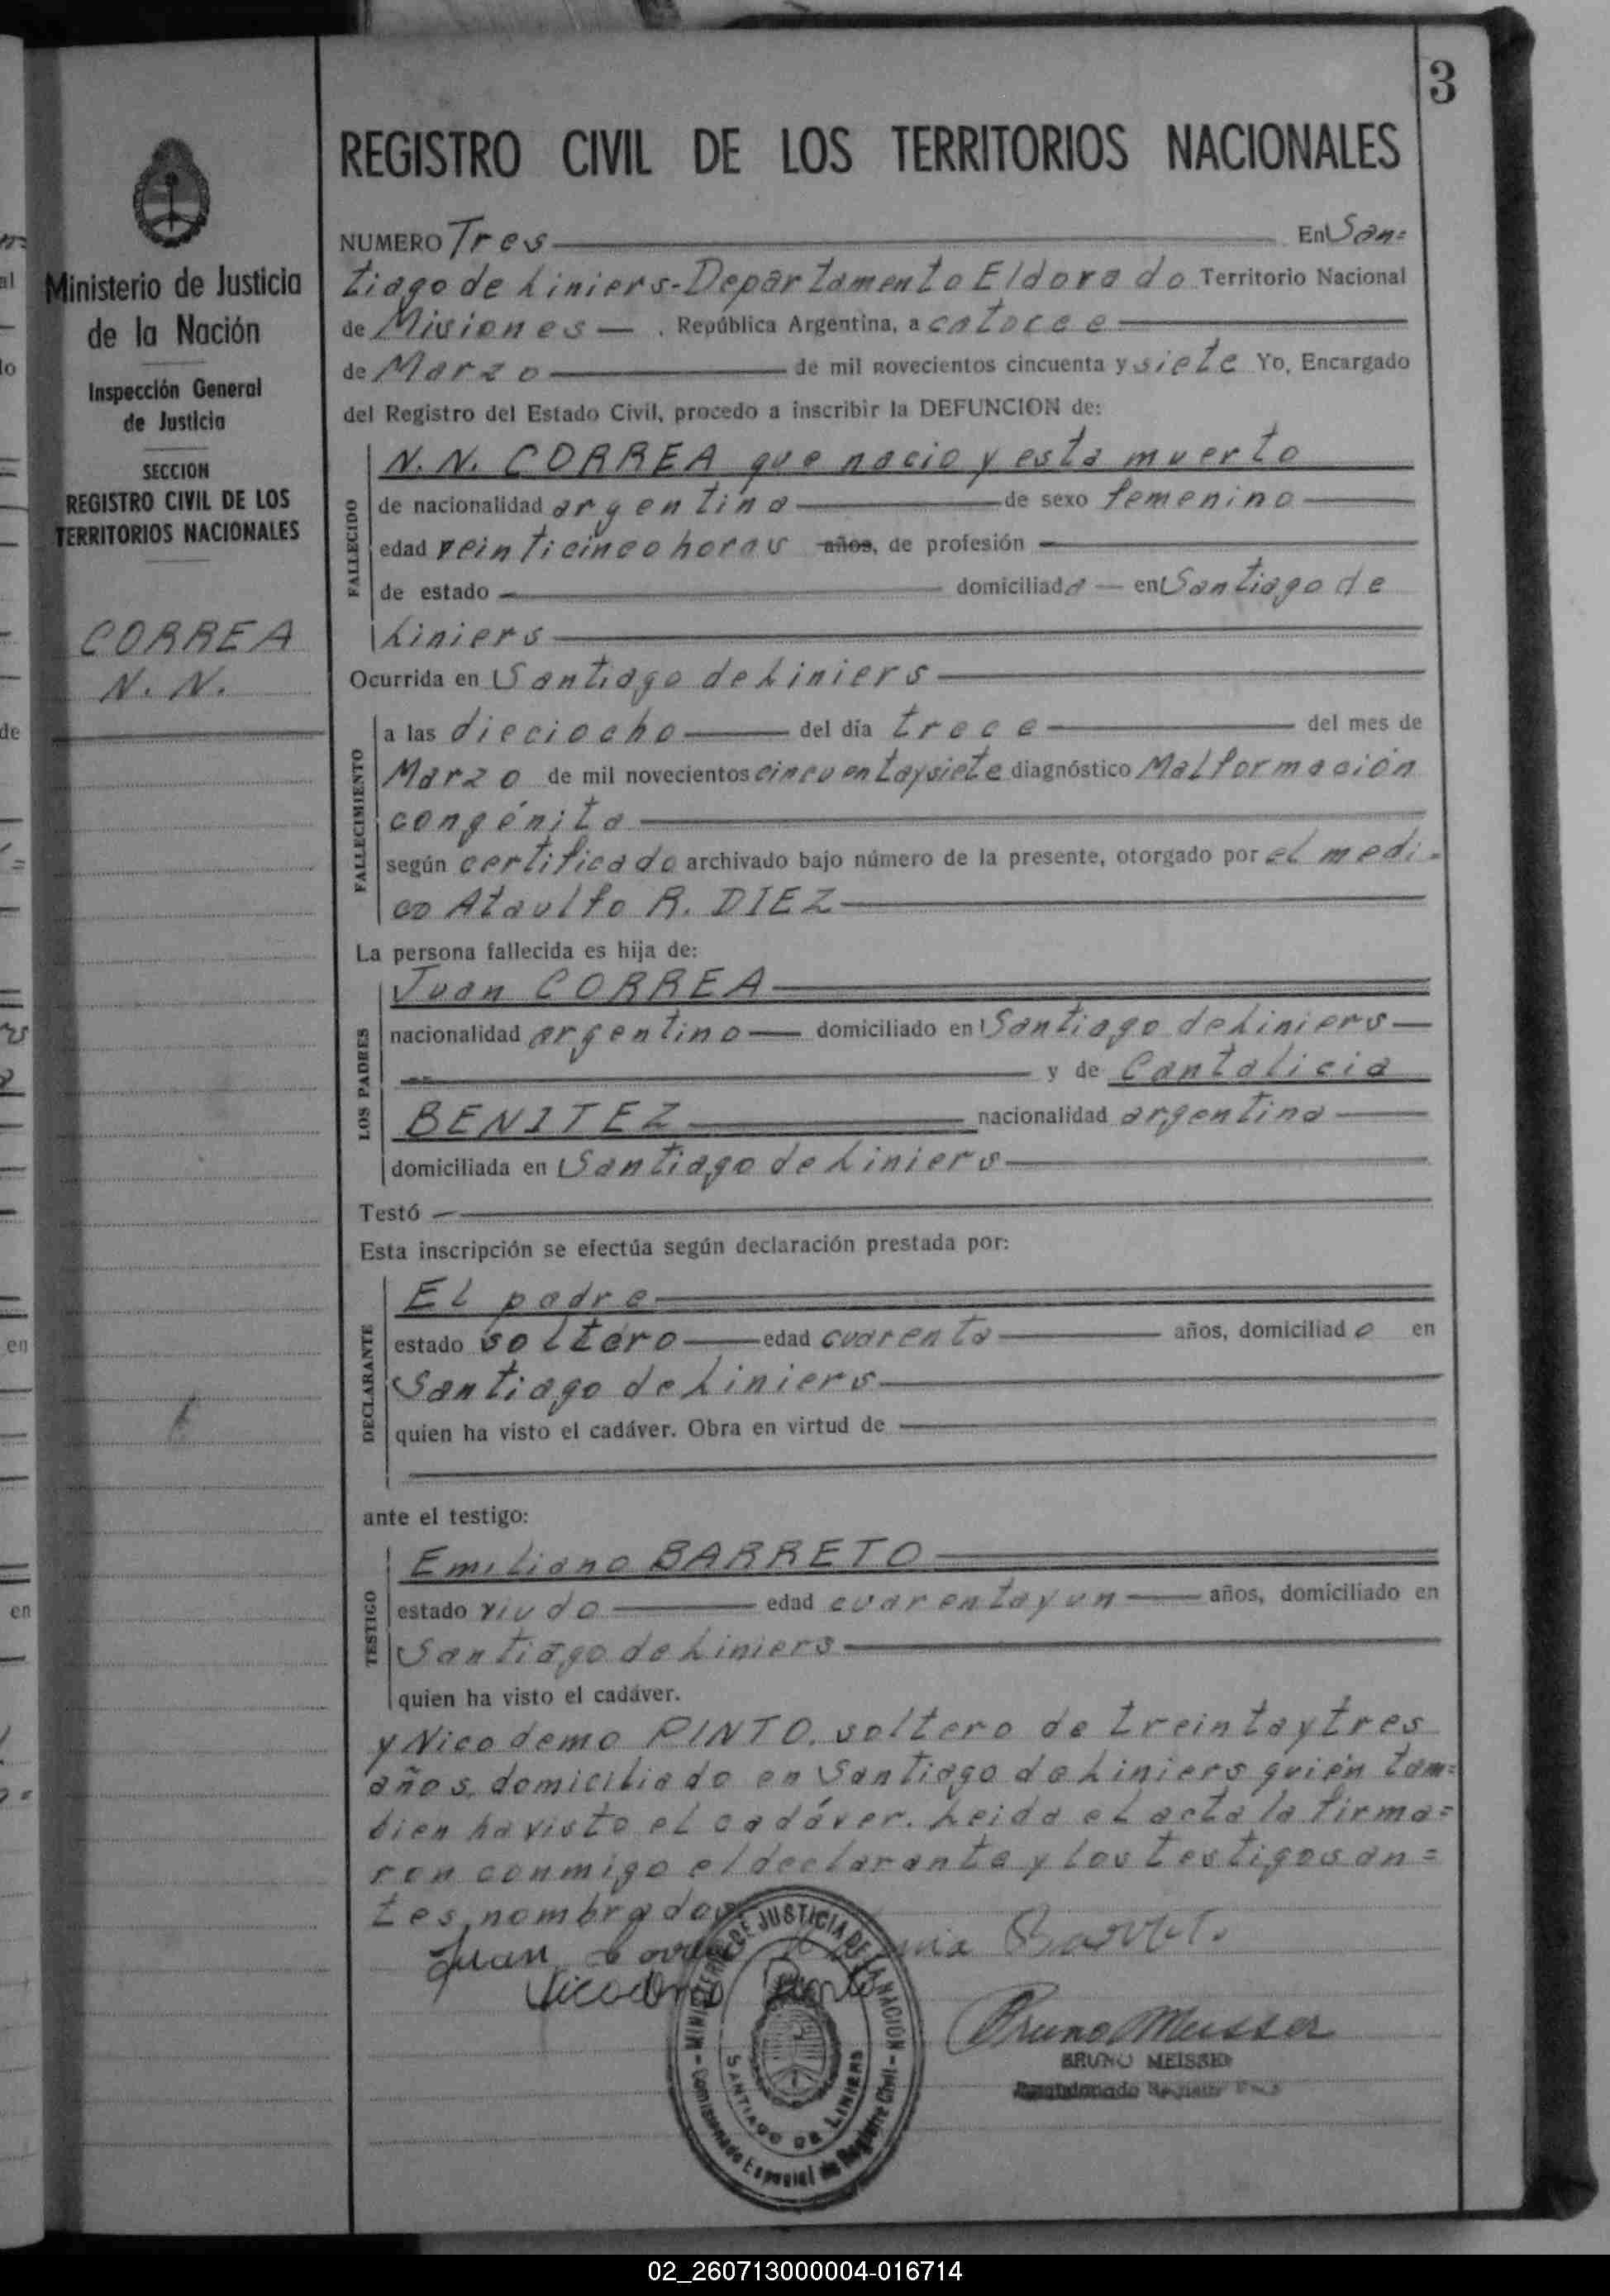 3
REGISTRO CIVIL DE LOS TERRITORIOS NACIONALES
Ministerio de Justicia
de la Nación
Inspección General
de Justicia
SECCION
REGISTRO CIVIL DE LOS
TERRITORIOS NACIONALES
CORREA
N. N.
NUMERO Tres En San=
tiago de Liniers-Departamento Eldorado Territorio Nacional
de Misiones . República Argentina, a catorce
de Marzo de mil novecientos cincuenta y siete Yo, Encargado
del Registro del Estado Civil, procedo a inscribir la DEFUNCION de:
FALLECIDO
N. N. CORREA que nacio y esta muerto
de nacionalidad argentina de sexo femenino
edad veinticinco horas años, de profesión
de estado domiciliada en Santiago de
Liniers
Ocurrida en Santiago de Liniers
FALLECIMIENTO
a las dieciocho del día trece del mes de
Marzo de mil novecientos cincuentaysiete diagnóstico Malformación
congénita
según certificado archivado bajo número de la presente, otorgado por el medi-
co Ataulfo R. DIEZ
La persona fallecida es hija de:
LOS PADRES
Juan CORREA
nacionalidad argentino domiciliado en Santiago de Liniers
y de Cantalicia
BENITEZ nacionalidad argentina
domiciliada en Santiago de Liniers
Testó
Esta inscripción se efectúa según declaración prestada por:
DECLARANTE
El padre
estado soltero edad cuarenta años, domiciliado en
Santiago de Liniers
quien ha visto el cadáver. Obra en virtud de
ante el testigo:
TESTIGO
Emiliano BARRETO
estado viudo edad cuarentayun años, domiciliado en
Santiago de Liniers
quien ha visto el cadáver.
y Nicodemo PINTO, soltero de treintaytres
años, domiciliado en Santiago de Liniers quién tam=
bien ha visto el cadáver. Leida el acta la firma=
ron conmigo el declarante y los testigos an=
tes nombrados
Juan Correa Barreto
Nicodemo Pinto
MINISTERIO DE JUSTICIA DE LA NACION
SANTIAGO DE LINIERS
Comisionado Especial de Registro Civil
Bruno Meisser
BRUNO MEISSER
02_260713000004-016714